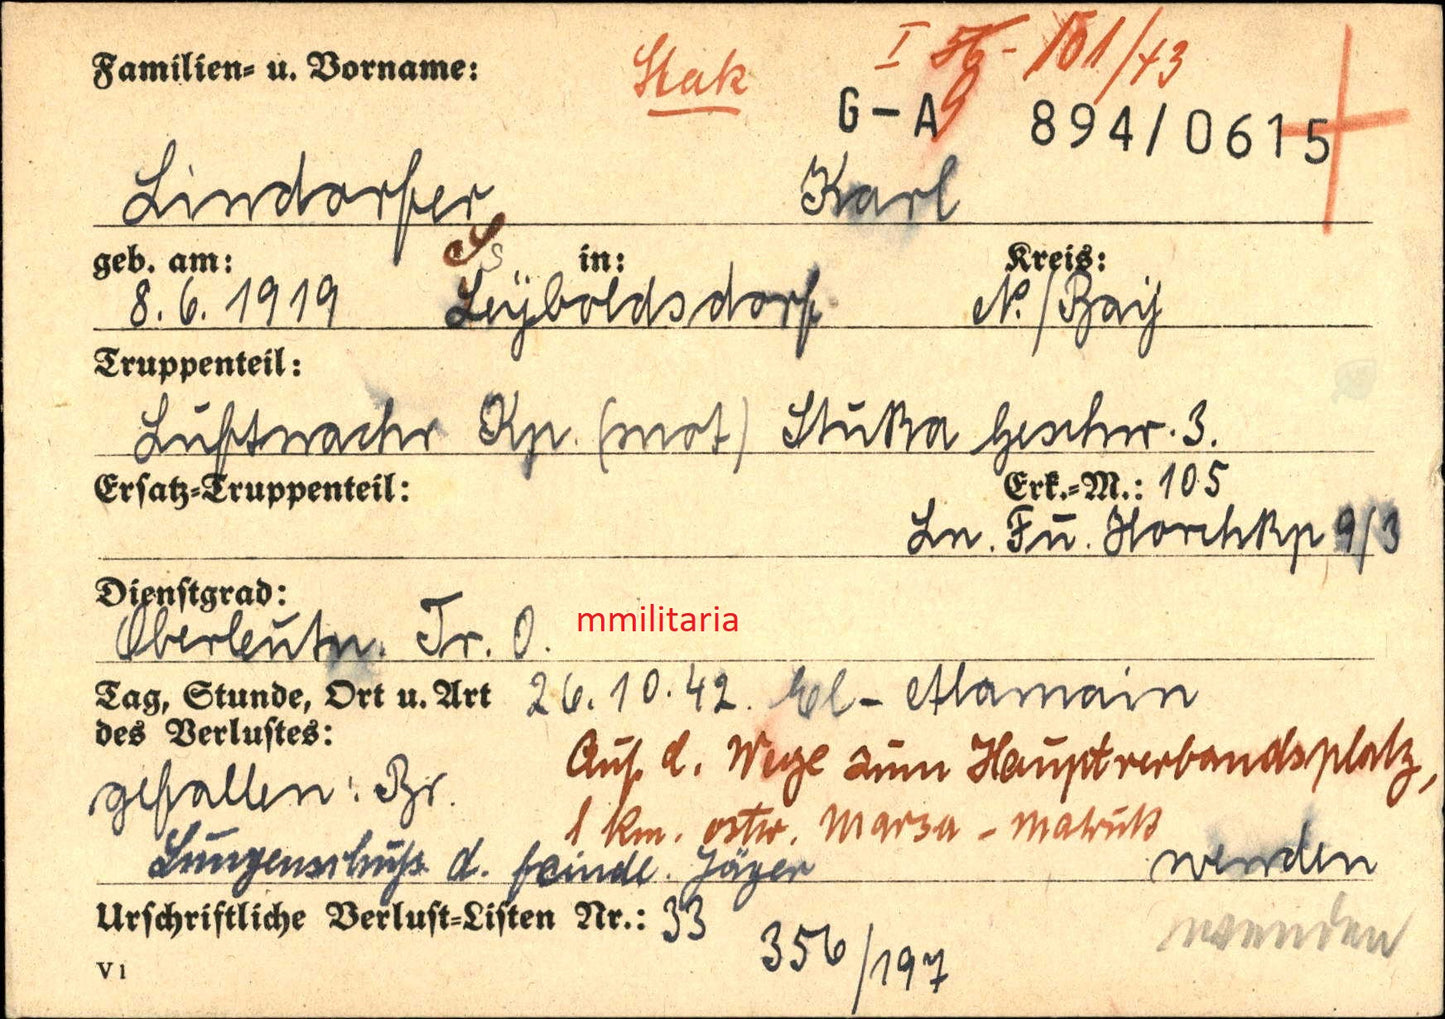 Familien= u. Vorname:
Stak
I 56 - 101/43
G-A 894/0615
Lindorfer Karl
geb. am: in: Kreis:
8.6.1919 Leÿboldsdorf N./Bay
Truppenteil:
Luftnachr Kp. (mot) Stuka Geschw. 3.
Ersatz=Truppenteil: Erk.=M.: 105
Ln. Fu. Horchkp 9/3
Dienstgrad:
Oberleutn. Tr. O.
mmilitaria
Tag, Stunde, Ort u. Art 26.10.42. El-Alamain
des Verlustes:
Auf d. Wege zum Hauptverbandsplatz,
gefallen: Br.
1 km. ostw. Marsa-Matruk
Lungenschuß d. feindl. Jäger wenden
Urschriftliche Verlust=Listen Nr.: 33
wenden
356/197
V 1